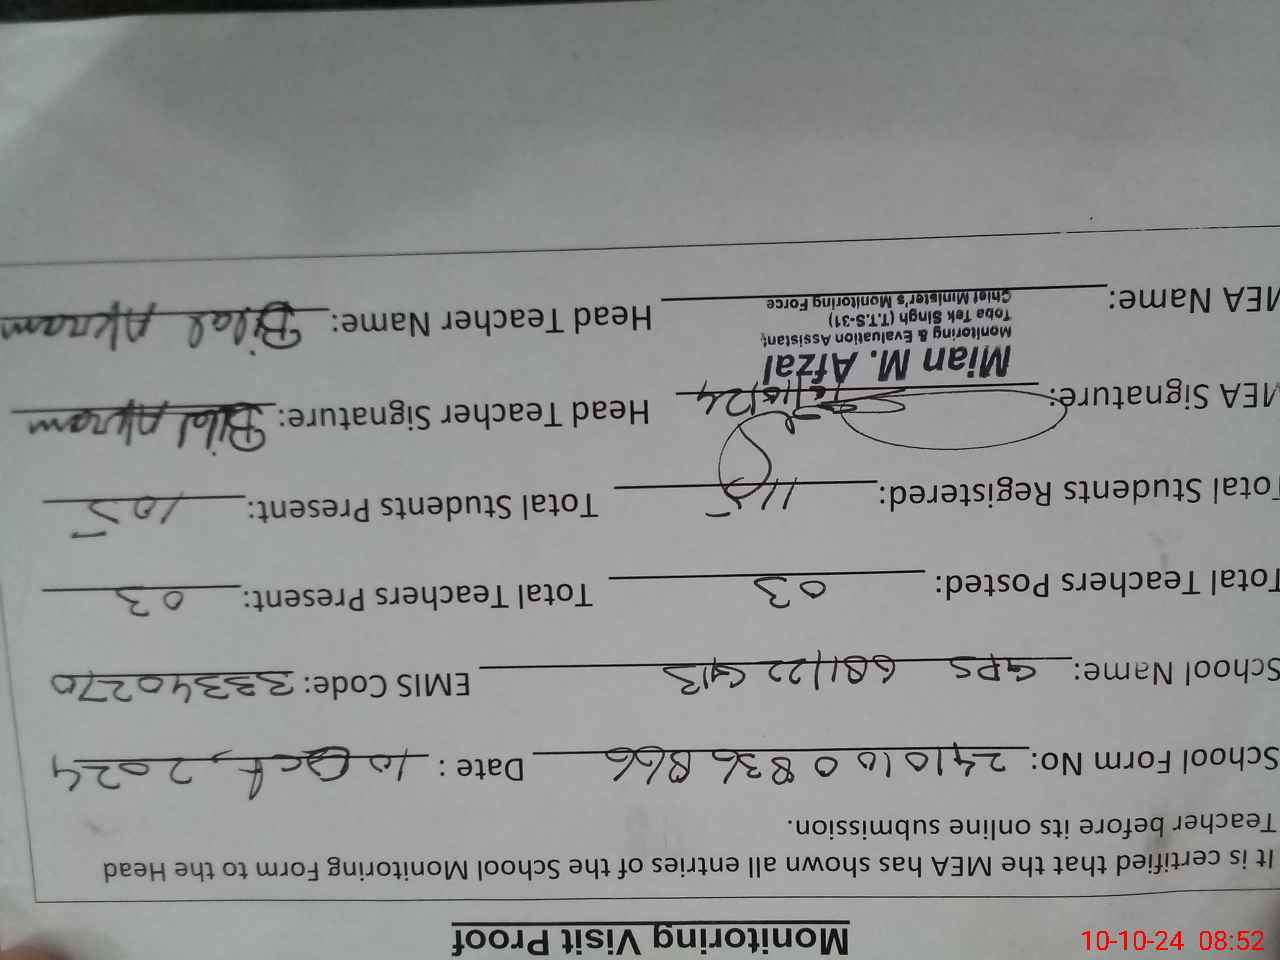 Monitoring Visit Proof
It is certified that the MEA has shown all entries of the School Monitoring Form to the Head
Teacher before its online submission.
School Form No: 241010 0836 866 Date : 10 Oct, 2024
School Name: GPS 681/22 GB EMIS Code: 33340270
Total Teachers Posted: 03 Total Teachers Present: 03
Total Students Registered: 115 Total Students Present: 105
MEA Signature: 10/10/24 Head Teacher Signature: Bilal Akram
Mian M. Afzal
Monitoring & Evaluation Assistant
Toba Tek Singh (T.T.S-31)
Chief Minister's Monitoring Force
MEA Name: Head Teacher Name: Bilal Akram
10-10-24 08:52